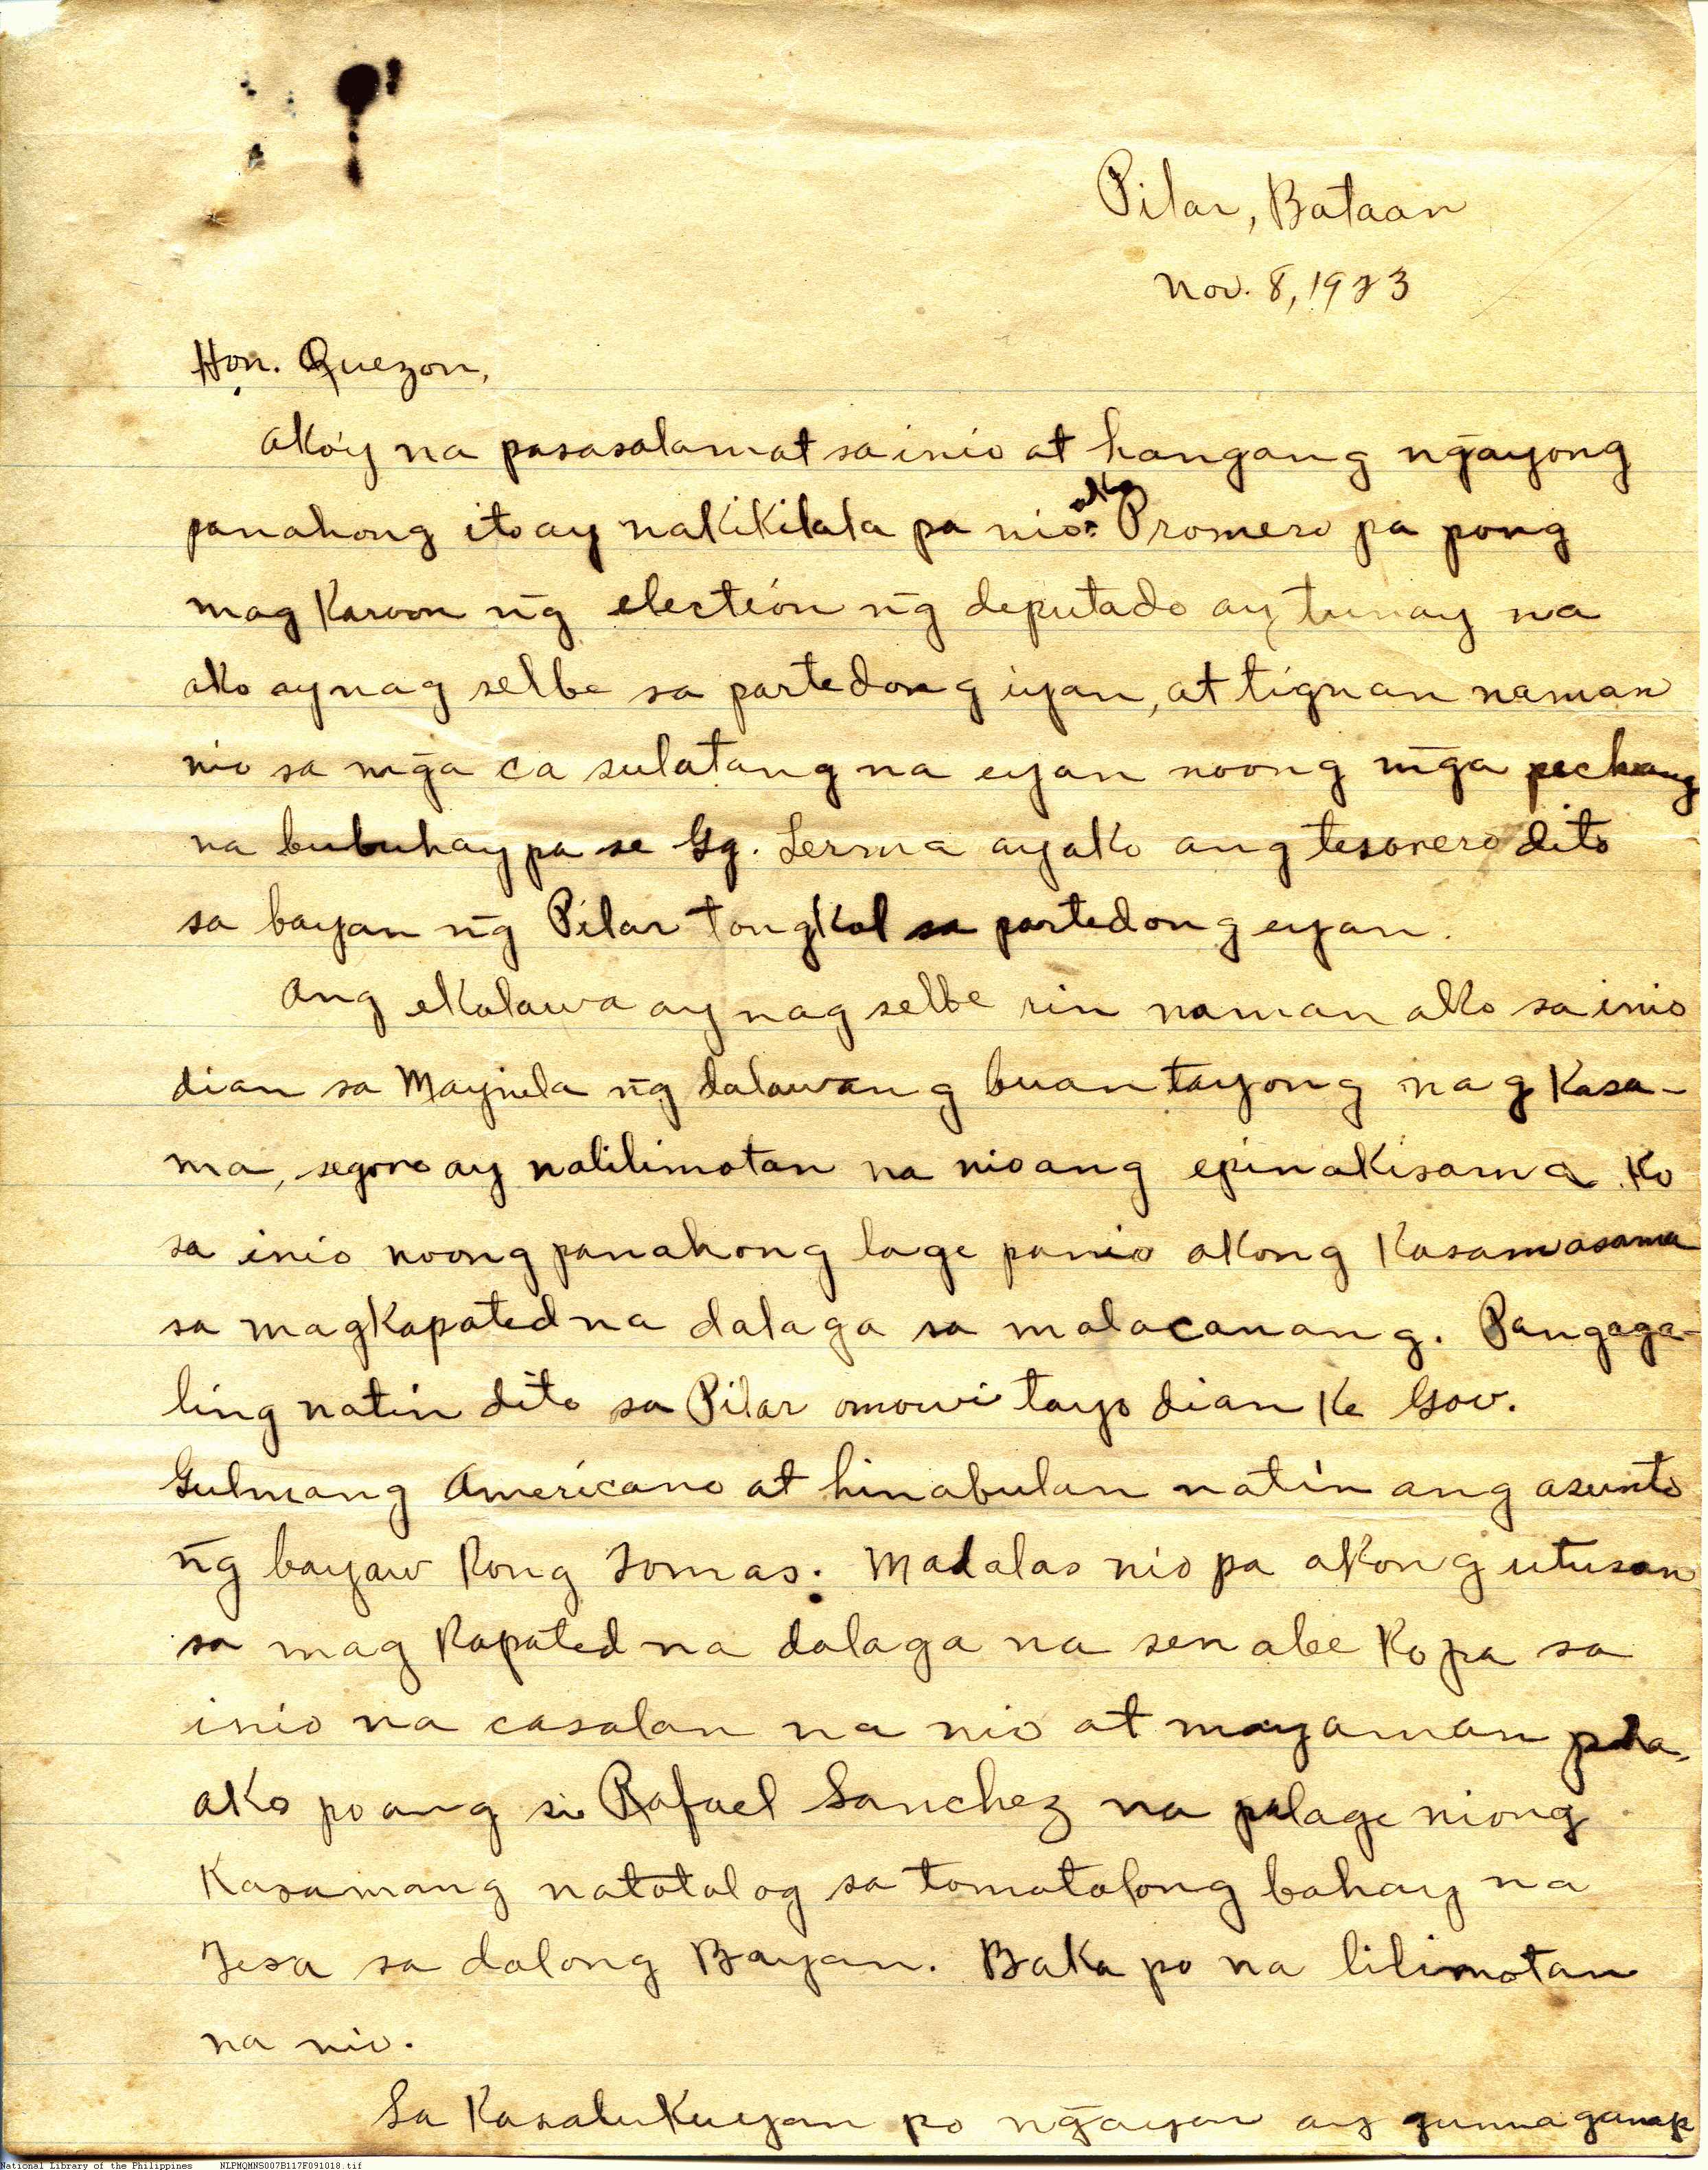 Pilar, Bataan
Nov. 8, 1923
Hon. Quezon,
ako'y na pasasalamat sa inio at hangang ng̃ayong
panahong ito ay nakikilala pa nio ako. Promero pa pong
mag karoon ñg electión ñg deputado ay tunay na
ako ay nag selbe sa partedong iyan, at tignan naman
nio sa mg̃a ca sulatang na eyan noong mg̃a pechang
na bubuhay pa se Gg. Lerma ay ako ang tesorero dito
sa bayan ñg Pilar tongkol sa partedong eyan.
Ang ekalawa ay nag selbe rin naman ako sa inio
dian sa Maynela ñg dalawang buan tayong nag kasa-
ma, segoro ay nalilimotan na nio ang epinakisama ko
sa inio noong panahong lage panio akong kasamasama
sa magkapated na dalaga sa malacanang. Pangaga-
ling natin dito sa Pilar omowi tayo dian ke Gov.
Gulmang Americano at hinabulan natin ang asunto
ñg bayaw kong Tomas. Madalas nio pa akong utusan
sa mag kapated na dalaga na sen abe ko pa sa
inio na casalan na nio at mayaman
ako po ang si Rafael Sanchez na palage niong
kasamang natotolog sa tomatolong bahay na
Tesa sa dolong Bayan. Baka po na lilimotan
na nio.
Sa kasalukuyan po ng̃ayon ay gumaganap
National Library of the Philippines NLPMQMNS007B117F091018.tif